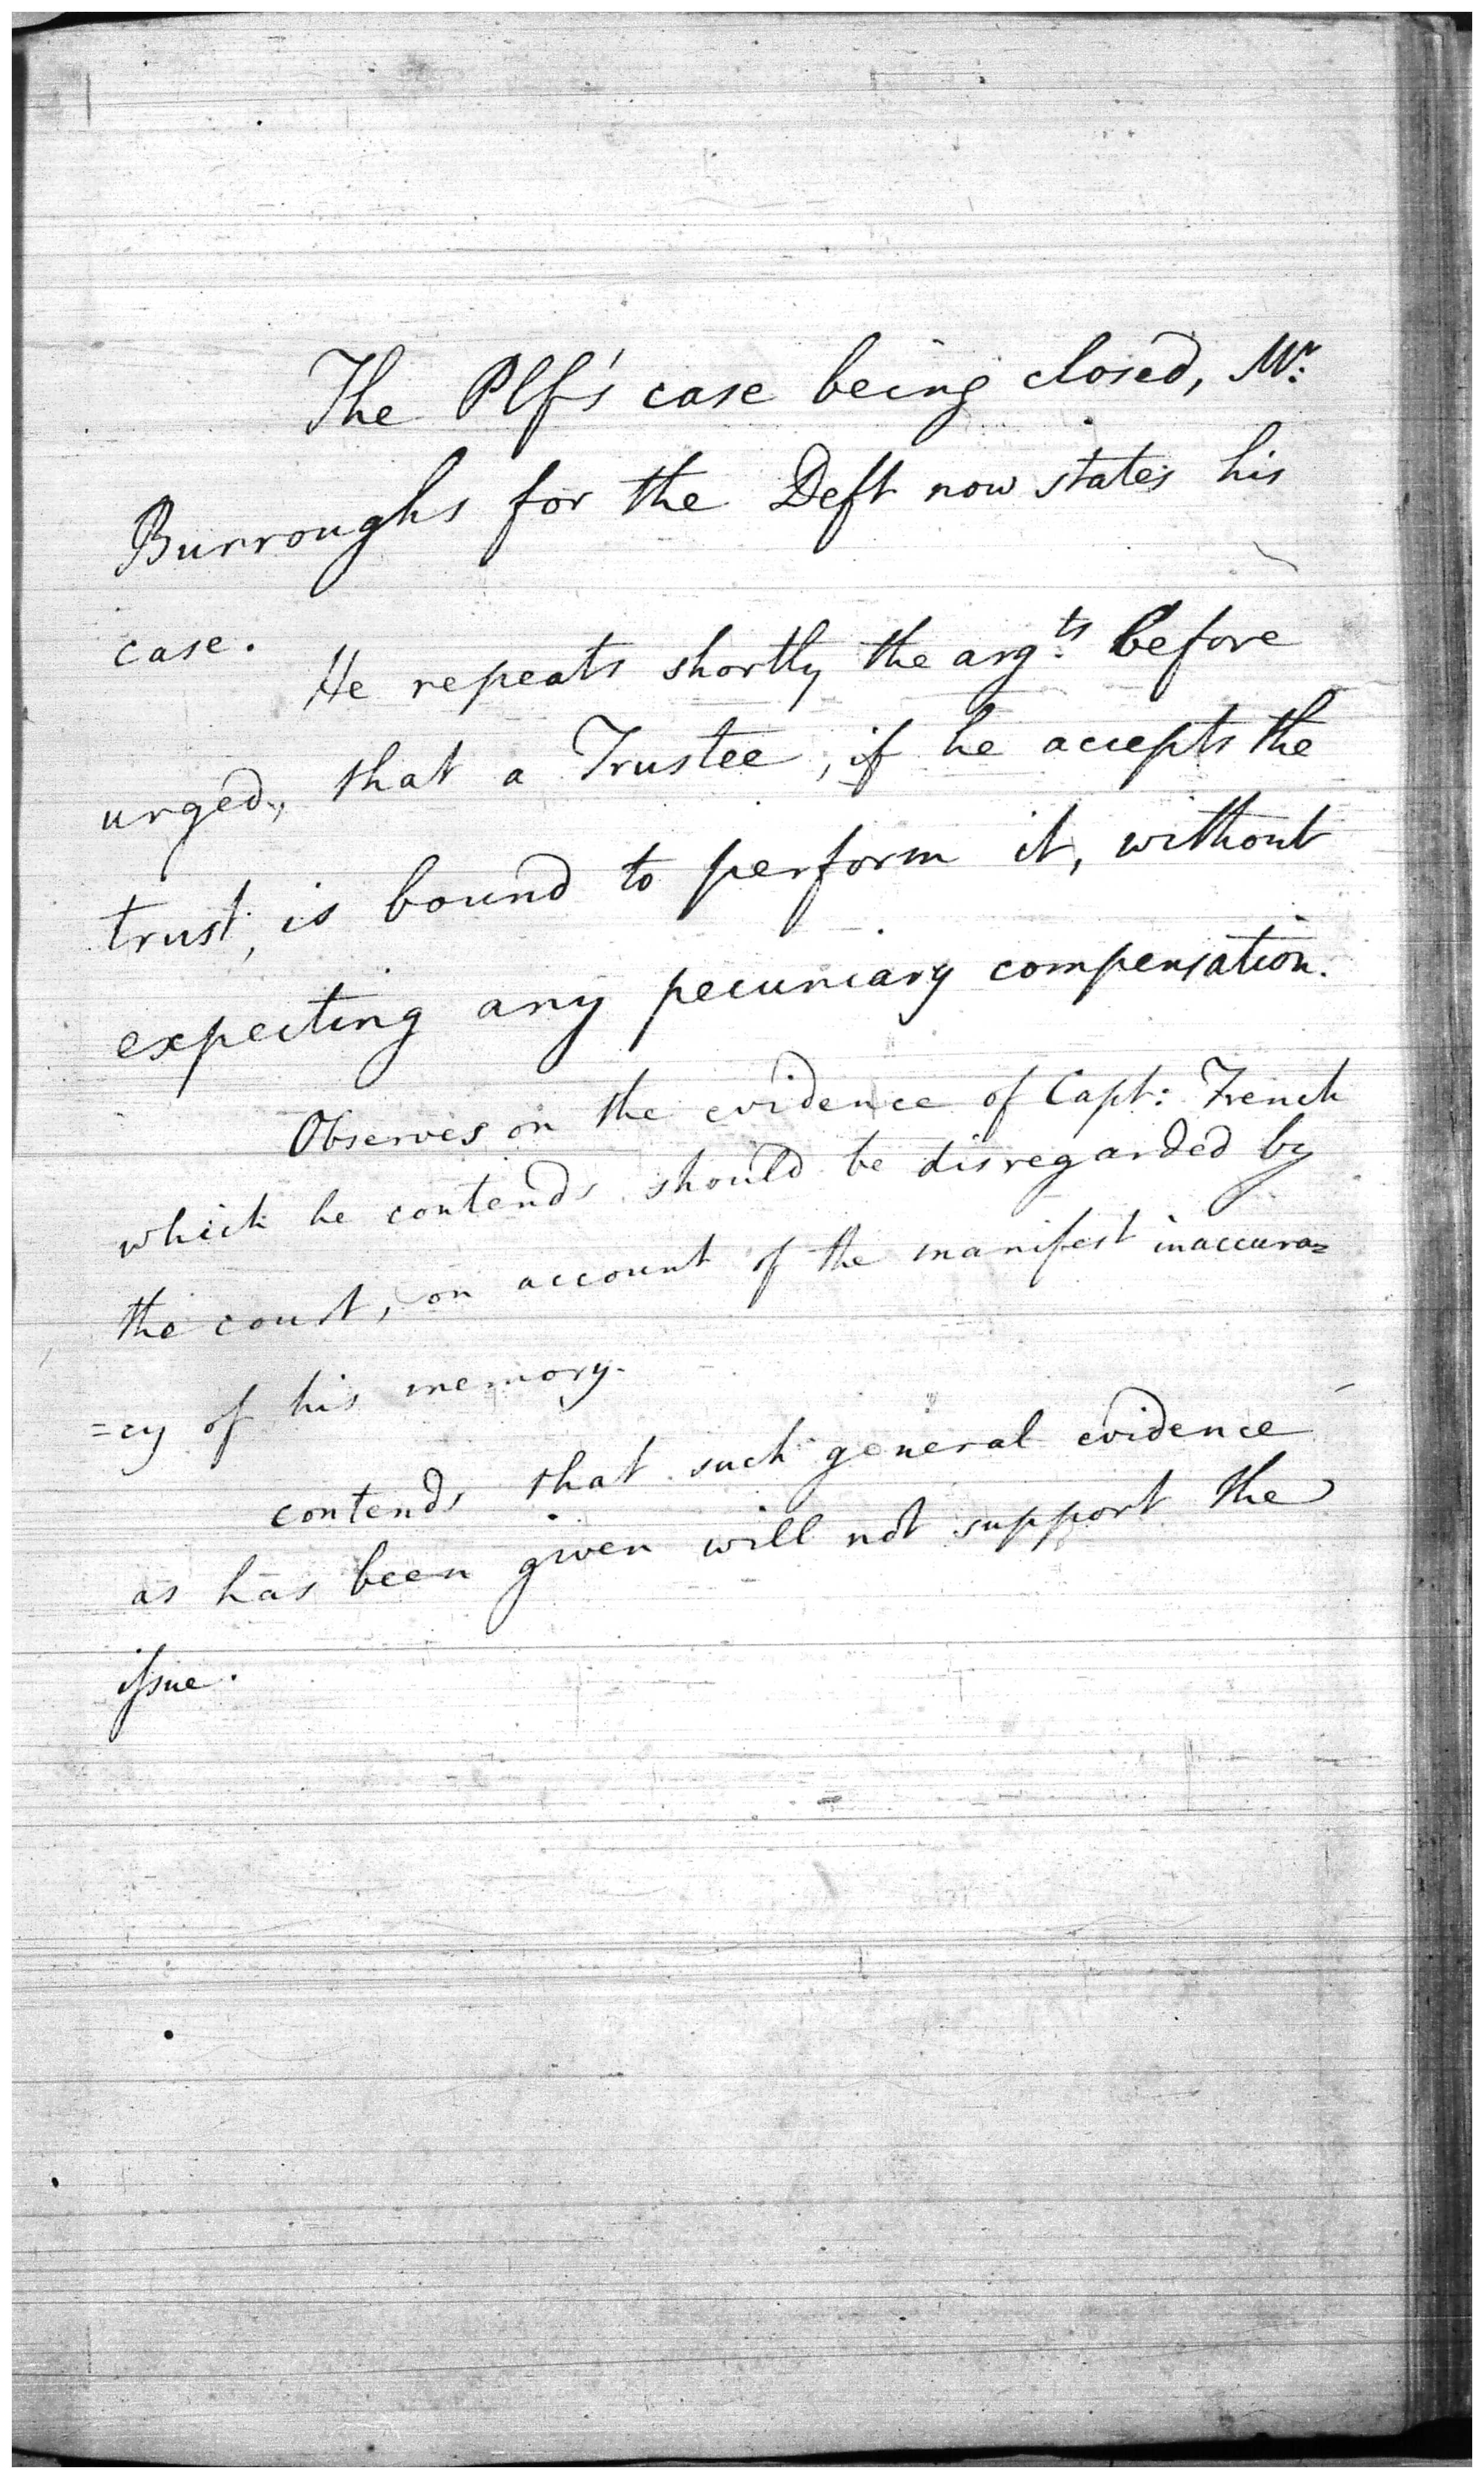 The Plf's case being closed, Mr:
Burroughs for the Deft now states his
case.
He repeats shortly the arg:ts before
urged, that a Trustee, if he accepts the
trust, is bound to perform it, without
expecting any pecuniary compensation.
Observes on the evidence of Capt: French
which he contends should be disregarded by
the court, on account of the manifest inaccura=
=cy of his memory.
contends that such general evidence
as has been given will not support the
issue.